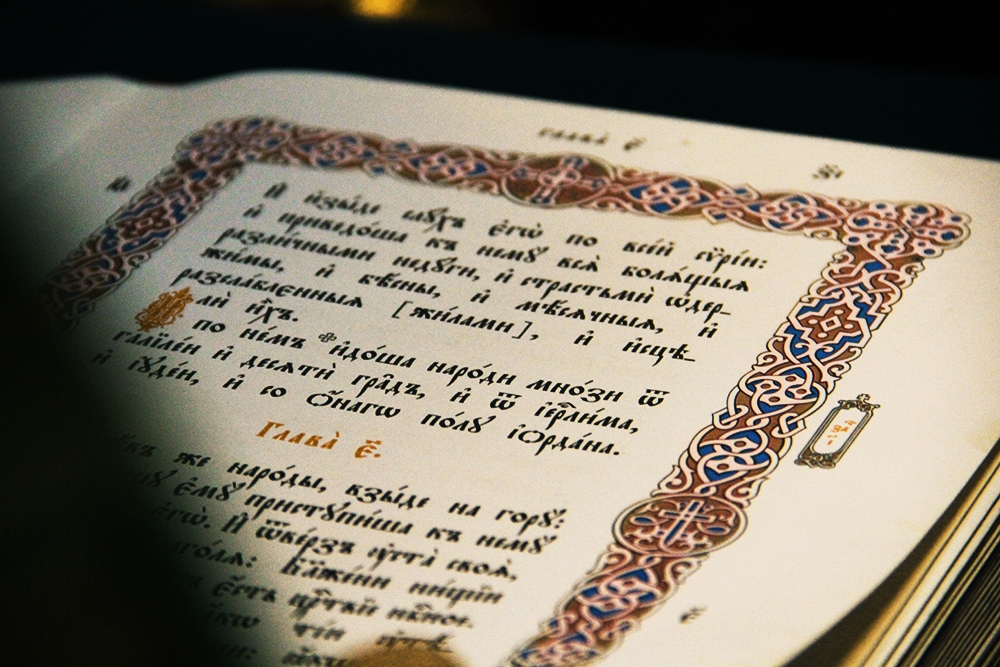 Глава̀ є҃.
И҆ и҆зы́де слꙋ́хъ є҆гѡ̀ по все́й сѷрі́и:
и҆ приведо́ша къ немꙋ̀ всѧ̑ болѧ́щыѧ
разли́чными недꙋ̑ги, и҆ страстьмѝ ѡ҆дер-
жи̑мы, и҆ бѣ̑сны, и҆ мѣ́сѧчныѧ, и҆
разсла́блєнныѧ [жи́лами], и҆ и҆сцѣ-
лѝ и҆̀хъ.
по не́мъ и҆до́ша наро́ди мно́зи ѿ
галїле́и и҆ десѧтѝ гра̑дъ, и҆ ѿ і҆ерⷭ҇ли́ма,
и҆ і҆ꙋде́и, и҆ со ѻ҆́нагѡ по́лꙋ і҆ѻрда́на.
Глава̀ є҃.
же наро́ды, взы́де на горꙋ̀:
є҆мꙋ̀ пристꙋпи́ша къ немꙋ̀
є҆гѡ̀. И҆ ѿве́рзъ ᲂу҆ста̀ своѧ̑,
Бл҃же́ни ни́щїи
є҆́сть црⷭ҇твїе нбⷭ҇ное.
ті́и